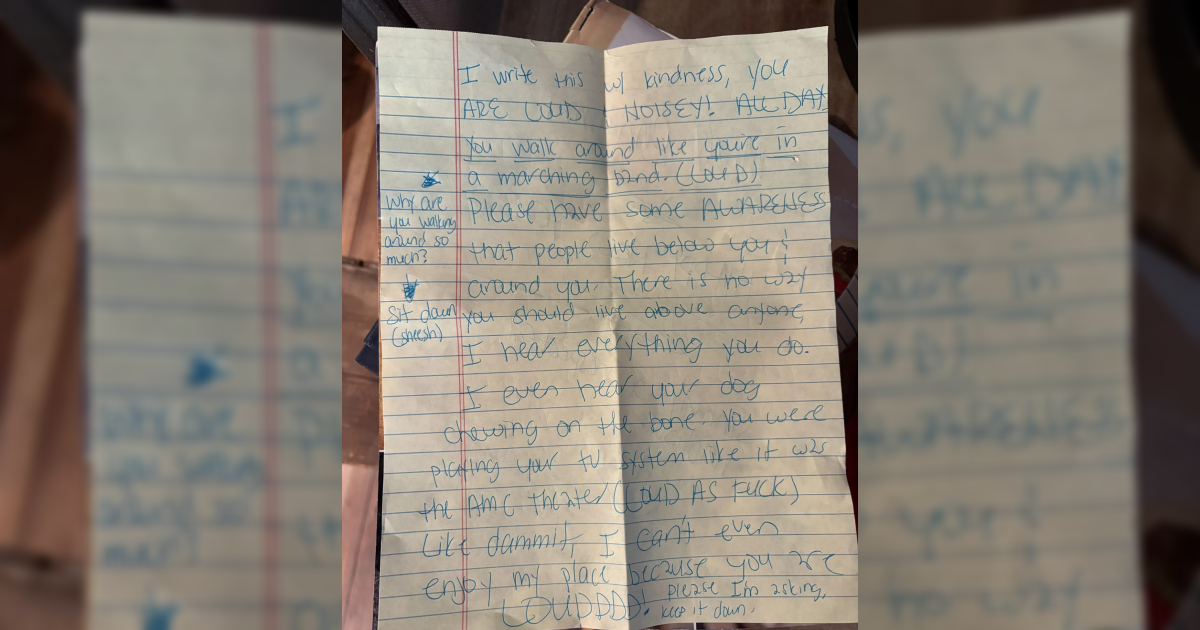 I write this w/ kindness, you
ARE LOUD & NOISEY! ALL DAY
You walk around like you're in
a marching band. (LOUD)
Please have some AWARENESS
that people live below you &
around you. There is no way
you should live above anyone,
I hear everything you do.
I even hear your dog
chewing on the bone. You were
playing your tv system like it was
the AMC theater (LOUD AS FUCK)
Like dammit, I can't even
enjoy my place because you are
LOUDDDD! please I'm asking,
keep it down.
why are
you walking
around so
much?
Sit down
(sheesh)